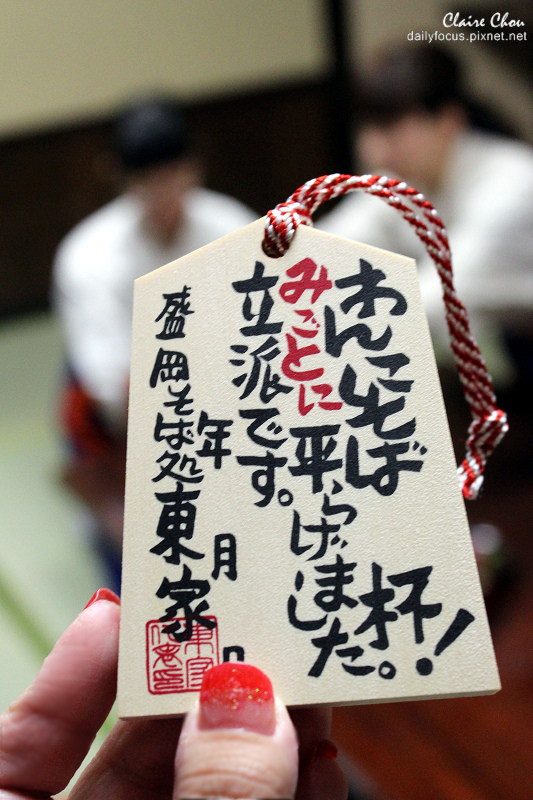 Claire Chou
dailyfocus.pixnet.net
わんこそば 杯！
みごとに平らげました。
立派です。
年 月 日
盛岡そば処東家